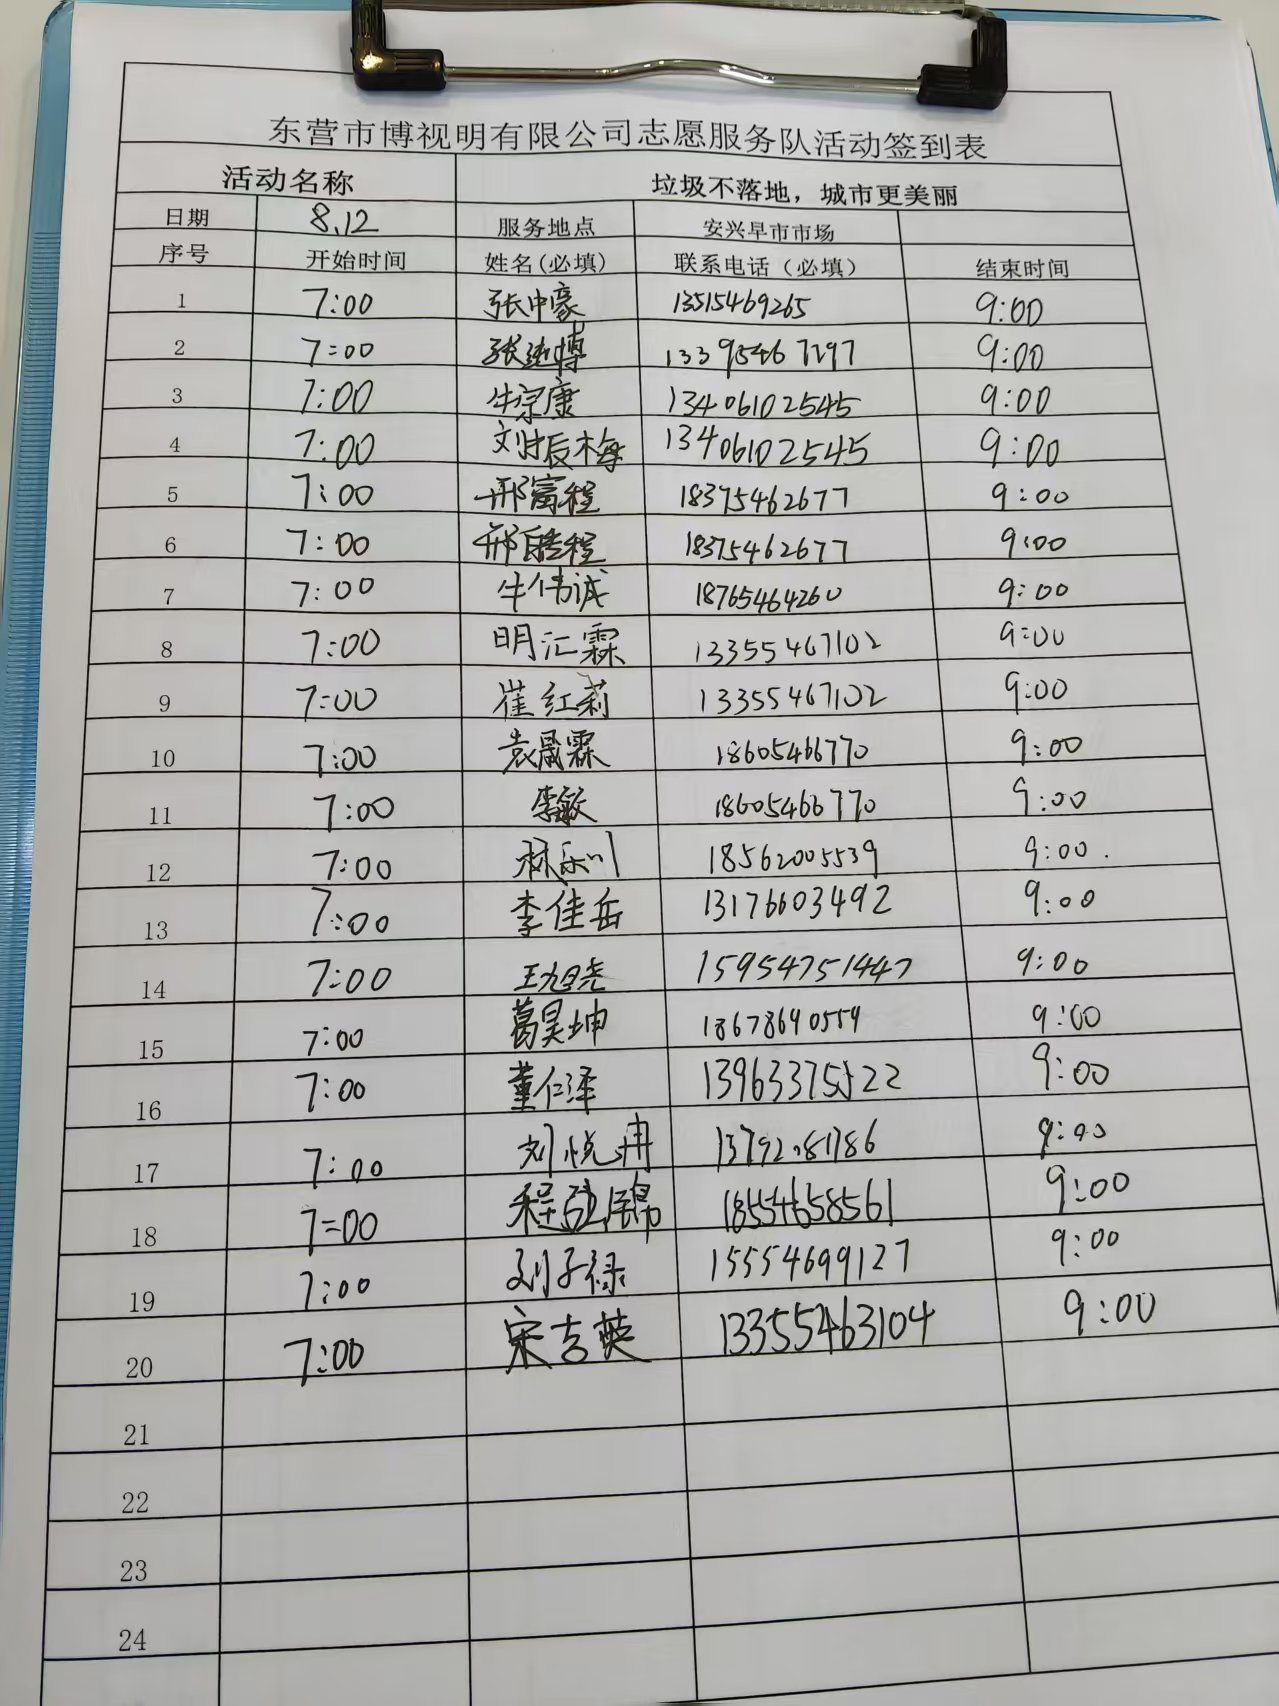 东营市博视明有限公司志愿服务队活动签到表
活动名称 垃圾不落地，城市更美丽
日期 8.12 服务地点 安兴早市市场
序号 开始时间 姓名(必填) 联系电话（必填） 结束时间
1 7:00 张中豪 13515469265 9:00
2 7:00 张延博 13395467297 9:00
3 7:00 牛宗康 13406102545 9:00
4 7:00 刘振梅 13406102545 9:00
5 7:00 邢富程 18375462677 9:00
6 7:00 邢皓程 18375462677 9:00
7 7:00 牛伟诚 18765464260 9:00
8 7:00 明汇霖 13355467102 9:00
9 7:00 崔红莉 13355467102 9:00
10 7:00 袁晟霖 18605466770 9:00
11 7:00 李敏 18605466770 9:00
12 7:00 林乐川 18562005539 9:00
13 7:00 李佳岳 13176603492 9:00
14 7:00 王旭尧 15954751447 9:00
15 7:00 葛昊坤 18678640559 9:00
16 7:00 董仁泽 13963375522 9:00
17 7:00 刘悦冉 9:00
18 7:00 18554658561 9:00
19 7:00 刘子绿 15554699127 9:00
20 7:00 宋吉英 13355463104 9:00
21
22
23
24